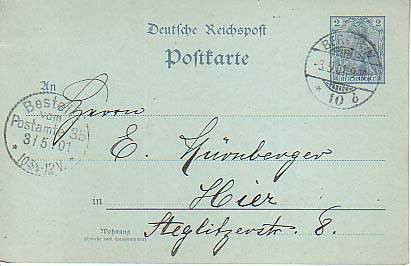 Deutsche Reichspost
Postkarte
2
REICHSPOST
BERLIN
-3.5.01.9-
* 10 b
An
Herrn
Bestellt
vom
Postamte 35
3/5 01
* 10¾-12V. *
E. Nürnberger
in Hier
Wohnung
(Straße und Hausnummer)
Steglitzerstr. 8.